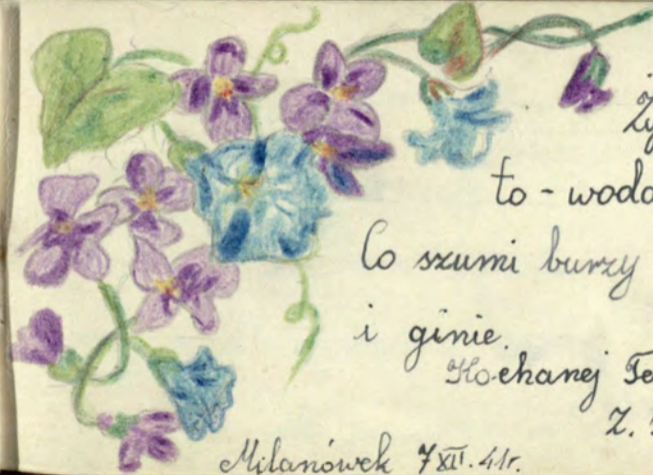 Ży
to - woda
Co szumi burzy
i ginie.
Kochanej Te
Z.
Milanówek 7 XII. 41r.